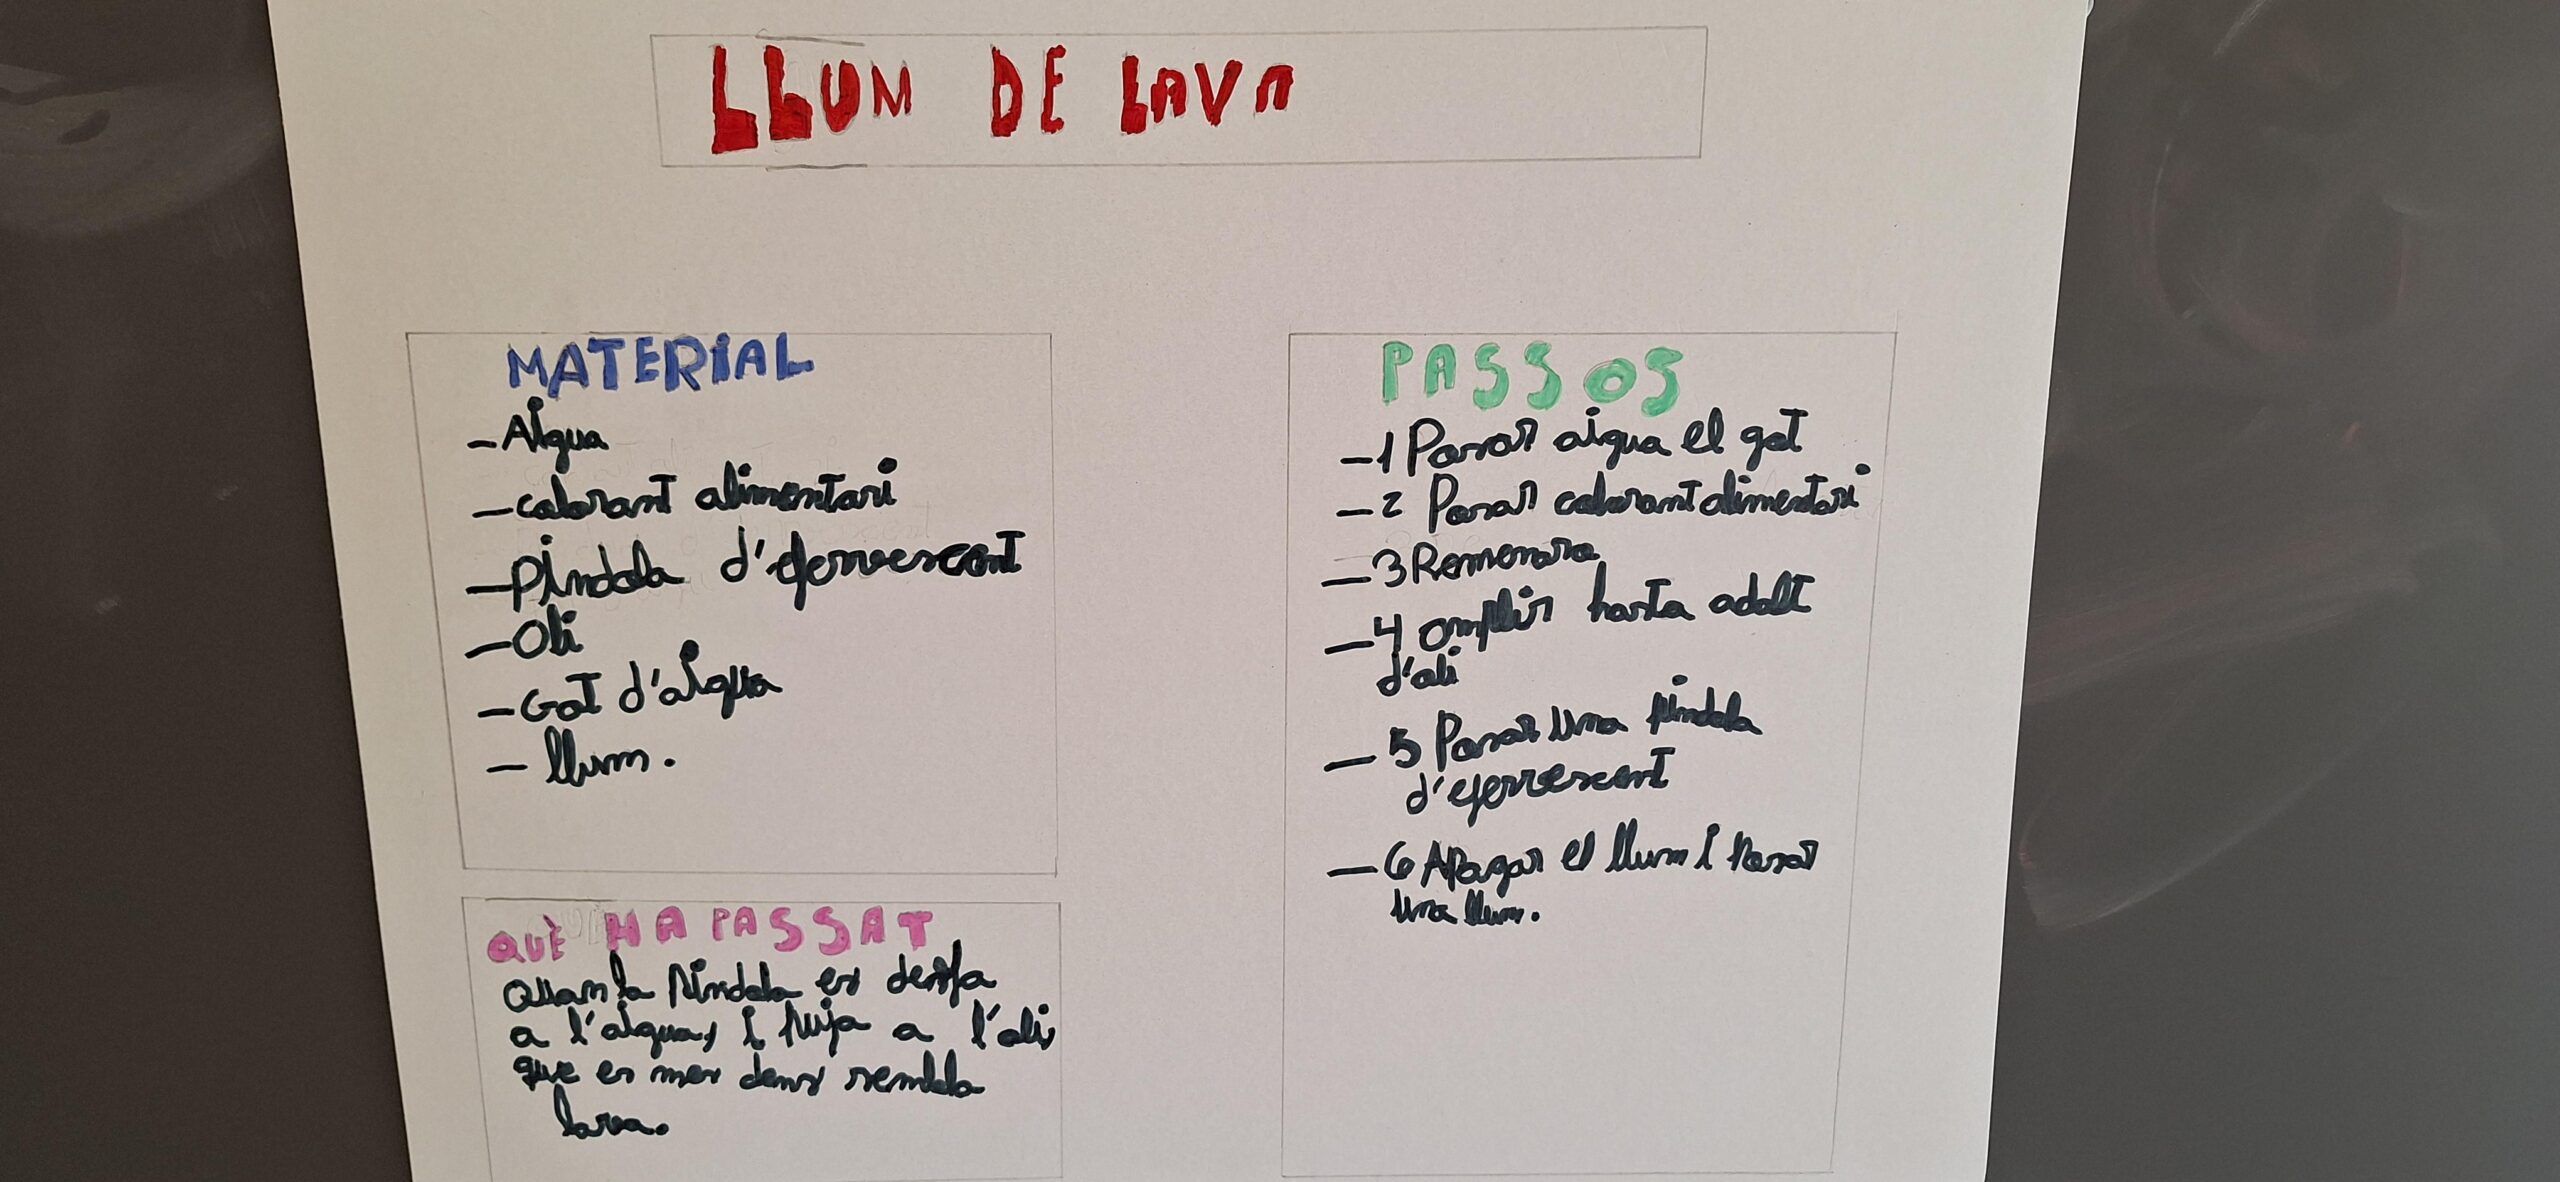 LLUM DE LAVA
MATERIAL
- Aigua
- colorant alimentari
- pindola d'efervescent
- Oli
- Got d'aigua
- llum.
QUÈ HA PASSAT
Quan la pindola es desfa
a l'aigua, i puja a l'oli,
que es mes dens sembla
lava.
PASSOS
-1 Posar aigua el got
-2 Posar colorant alimentari
-3 Remenara
-4 omplir hasta adalt
d'oli
-5 Posar una pindola
d'efervescent
-6 Apagar el llum i posar
una llum.